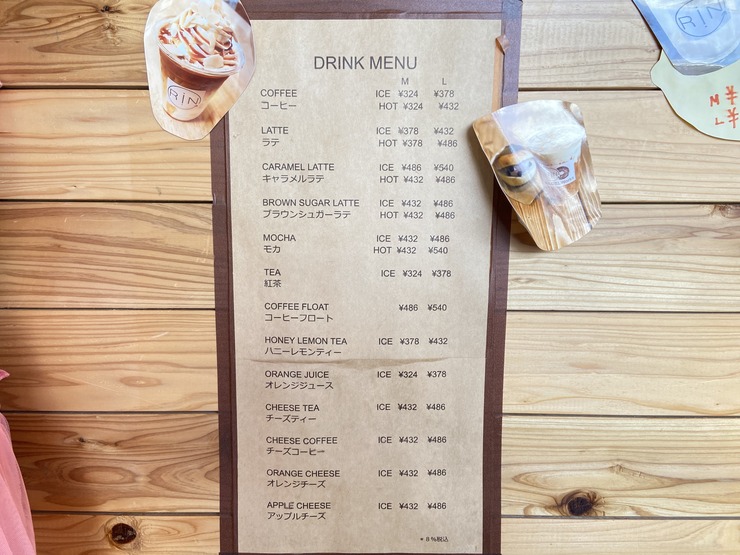 DRINK MENU
M L
COFFEE ICE ¥324 ¥378
コーヒー HOT ¥324 ¥432
LATTE ICE ¥378 ¥432
ラテ HOT ¥378 ¥486
CARAMEL LATTE ICE ¥486 ¥540
キャラメルラテ HOT ¥432 ¥486
BROWN SUGAR LATTE ICE ¥432 ¥486
ブラウンシュガーラテ HOT ¥432 ¥486
MOCHA ICE ¥432 ¥486
モカ HOT ¥432 ¥540
TEA ICE ¥324 ¥378
紅茶
COFFEE FLOAT ¥486 ¥540
コーヒーフロート
HONEY LEMON TEA ICE ¥378 ¥432
ハニーレモンティー
ORANGE JUICE ICE ¥324 ¥378
オレンジジュース
CHEESE TEA ICE ¥432 ¥486
チーズティー
CHEESE COFFEE ICE ¥432 ¥486
チーズコーヒー
ORANGE CHEESE ICE ¥432 ¥486
オレンジチーズ
APPLE CHEESE ICE ¥432 ¥486
アップルチーズ
* 8%税込
RiN
RiN
M ¥
L ¥